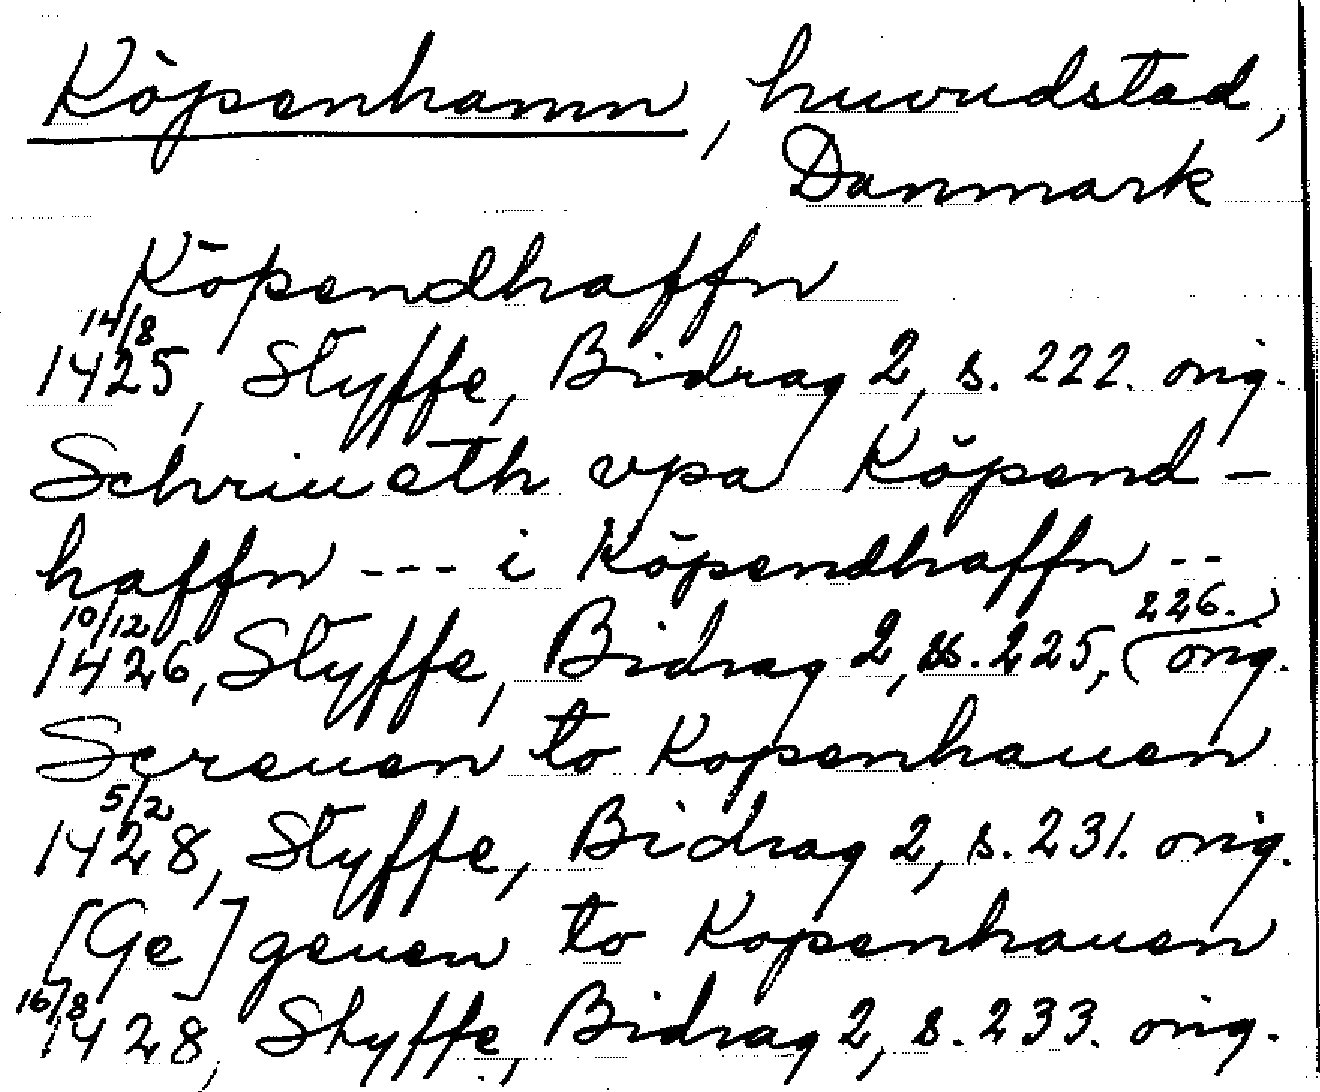 Köpenhamn, huvudstad,
Danmark
Köpendhaffn
14/8
1425, Styffe, Bidrag 2, s. 222. orig.
Schriueth vpa Köpend-
haffn --- i Köpendhaffn --
10/12 226.
1426, Styffe, Bidrag 2, ss. 225, (orig.
Screuen to Kopenhauen
5/2
1428, Styffe, Bidrag 2, s. 231. orig.
[Ge] geuen to Kopenhauen
16/8
1428, Styffe, Bidrag 2, s. 233. orig.